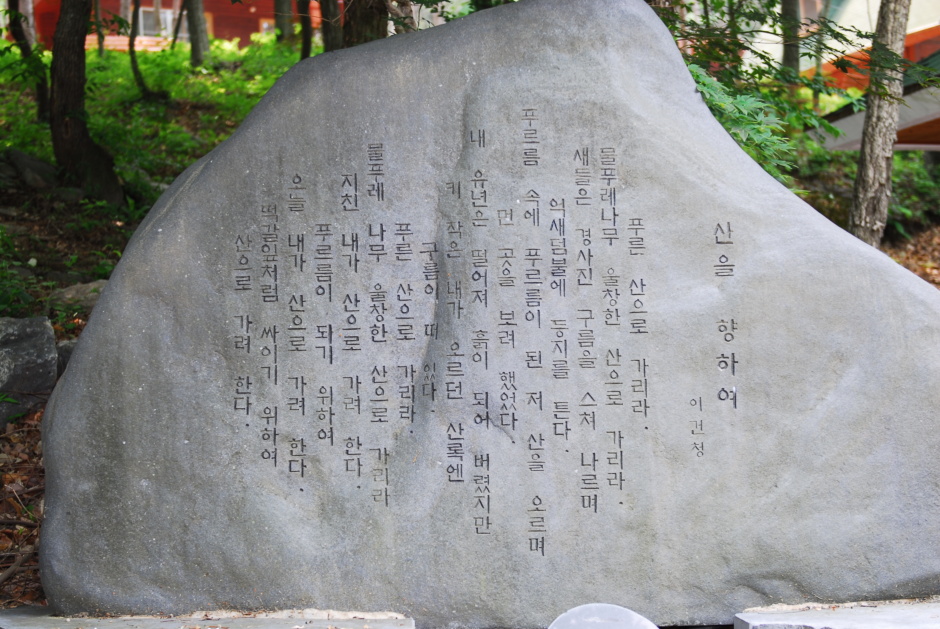 산을 향하여
이건청
푸른 산으로 가리라.
물푸레나무 울창한 산으로 가리라.
새들은 경사진 구름을 스쳐 나르며
억새덤불에 둥지를 튼다.
푸르름 속에 푸르름이 된 저 산을 오르며
먼 곳을 보려 했었다.
내 유년은 떨어져 흙이 되어 버렸지만
키 작은 내가 오르던 산록엔
구름이 떠 있다.
푸른 산으로 가리라.
물푸레 나무 울창한 산으로 가리라
지친 내가 산으로 가려 한다.
푸르름이 되기 위하여
오늘 내가 산으로 가려 한다.
떡갈잎처럼 싸이기 위하여
산으로 가려 한다.